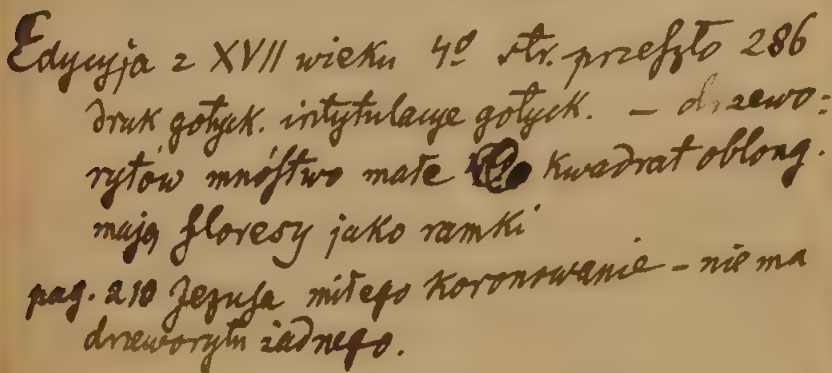 Edycyja z XVII wieku 4º str. przeszło 286
druk gotyck. intytulacye gotyck. – drzewo:
rytów mnóstwo małe kwadrat oblong.
mają floresy jako ramki
pag. 210 Jezusa miłego koronowanie – nie ma
drzeworytu żadnego.